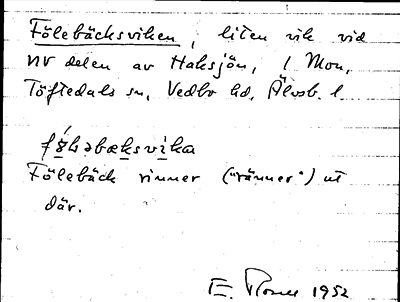 Fölebäcksviken, liten vik vid
NV delen av Haksjön, 1 Mon,
Töftedals sn, Vedbo hd, Älvsb. l.
Fölebäck rinner ("ränner") ut
där.
E. 1952